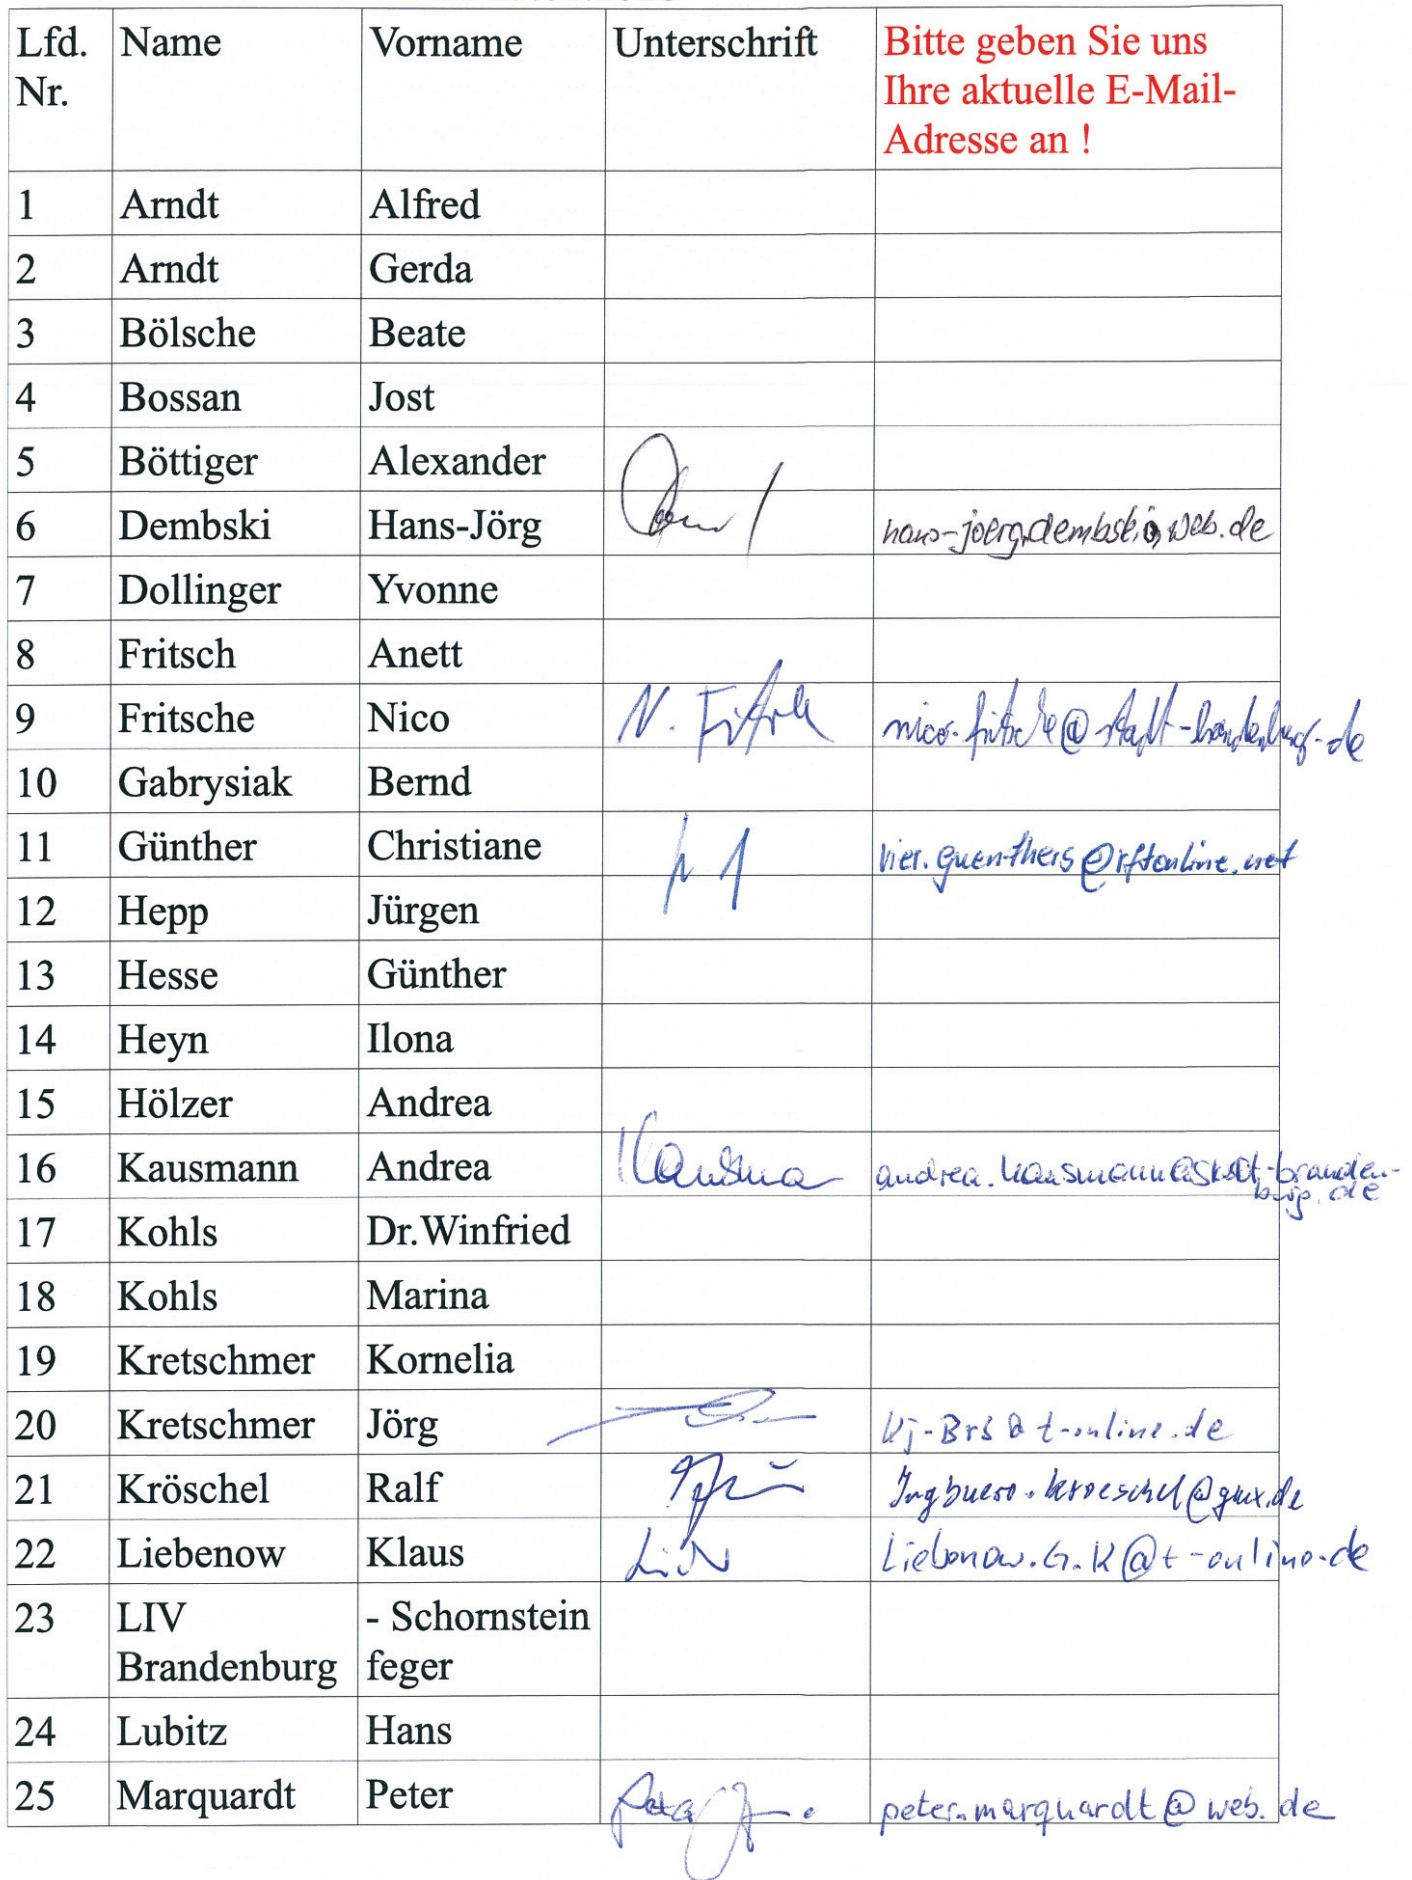 Lfd. Nr. Name Vorname Unterschrift Bitte geben Sie uns Ihre aktuelle E-Mail-Adresse an !
1 Arndt Alfred
2 Arndt Gerda
3 Bölsche Beate
4 Bossan Jost
5 Böttiger Alexander
6 Dembski Hans-Jörg hans-joerg.dembski@web.de
7 Dollinger Yvonne
8 Fritsch Anett
9 Fritsche Nico N. nico.fritsche@stadt-brandenburg.de
10 Gabrysiak Bernd
11 Günther Christiane vier.guenthers@rftonline.net
12 Hepp Jürgen
13 Hesse Günther
14 Heyn Ilona
15 Hölzer Andrea
16 Kausmann Andrea andrea.kausmann@stadt-branden-
burg.de
17 Kohls Dr.Winfried
18 Kohls Marina
19 Kretschmer Kornelia
20 Kretschmer Jörg kj-Brb@t-online.de
21 Kröschel Ralf Ingbuero.kroeschel@gmx.de
22 Liebenow Klaus Liebenow.G.K@t-online.de
23 LIV Brandenburg - Schornstein feger
24 Lubitz Hans
25 Marquardt Peter peter.marquardt@web.de